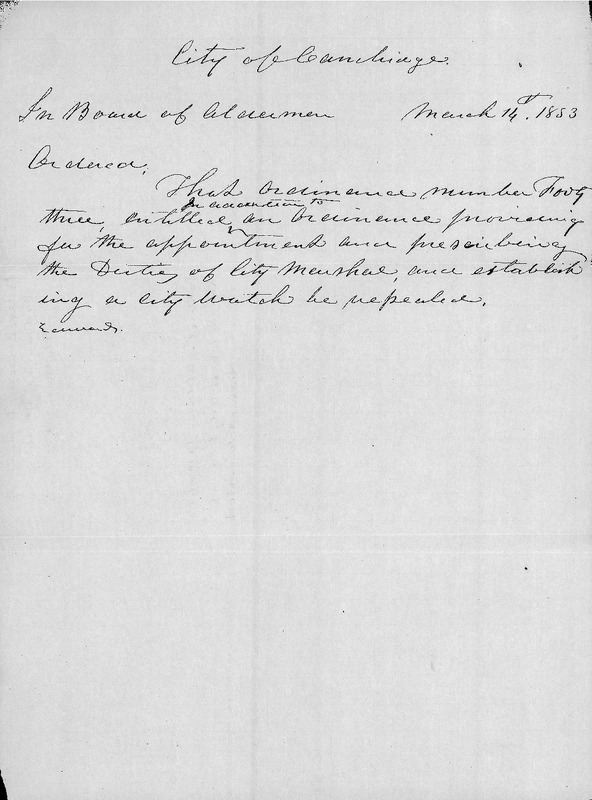 City of Cambridge.
In Board of Aldermen March 14th. 1853
Ordered,
That Ordinance number Forty
In addition to
three, entitled, an Ordinance providing
for the appointment and prescribing
the Duties of City Marshal, and establish
ing a city Watch be repealed.